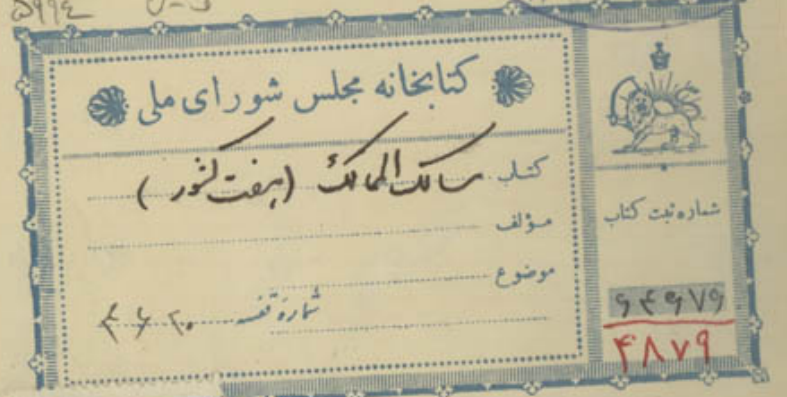 ۵۹۹۴
کتابخانه مجلس شورای ملی
کتاب مسالک الممالک (هفت کشور)
مؤلف
موضوع
شمارهٔ قفسه ۴۶۲۰
شماره ثبت کتاب
۶۴۹۷۶
۴۸۷۹